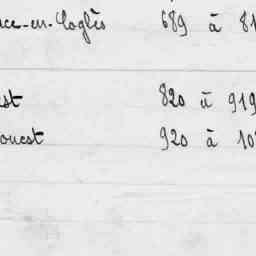 ice-en-Coglès 689 à 81
est 820 à 919
ouest 920 à 10